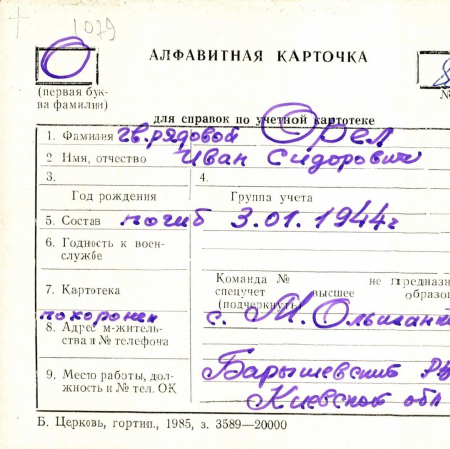 1079
О
АЛФАВИТНАЯ КАРТОЧКА
(первая бук-
ва фамилии)
№
для справок по учетной картотеке
1. Фамилия гв.рядовой Орел
2 Имя, отчество Иван Сидорович
3.
4.
Год рождения
Группа учета
5. Состав погиб 3.01.1944г
6. Годность к воен-
службе
7. Картотека
Команда № не предназн
спецучет высшее образо
(подчеркнуть)
похоронен с. М.
8. Адрес м-житель-
ства и № телефона
9. Место работы, дол-
жность и № тел. ОК
Барышевский
Киевской обл
Б. Церковь, гортип., 1985, з. 3589—20000